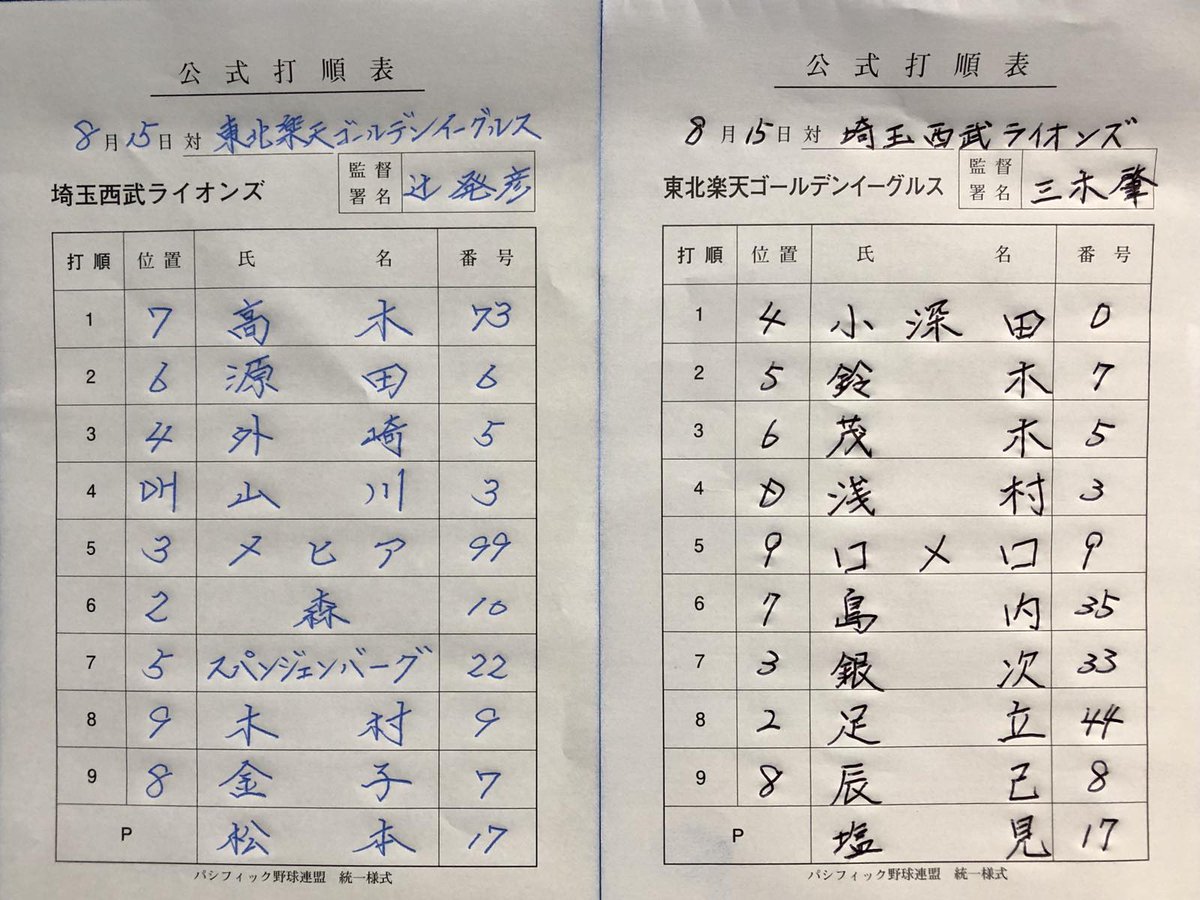 公式打順表
8月15日 対 東北楽天ゴールデンイーグルス
埼玉西武ライオンズ 監督署名 辻発彦
打順 位置 氏名 番号
1 7 高木 73
2 6 源田 6
3 4 外崎 5
4 DH 山川 3
5 3 メヒア 99
6 2 森 10
7 5 スパンジェンバーグ 22
8 9 木村 9
9 8 金子 7
P 松本 17
パシフィック野球連盟 統一様式
公式打順表
8月15日 対 埼玉西武ライオンズ
東北楽天ゴールデンイーグルス 監督署名 三木肇
打順 位置 氏名 番号
1 4 小深田 0
2 5 鈴木 7
3 6 茂木 5
4 D 浅村 3
5 9 ロメロ 9
6 7 島内 35
7 3 銀次 33
8 2 足立 44
9 8 辰己 8
P 塩見 17
パシフィック野球連盟 統一様式